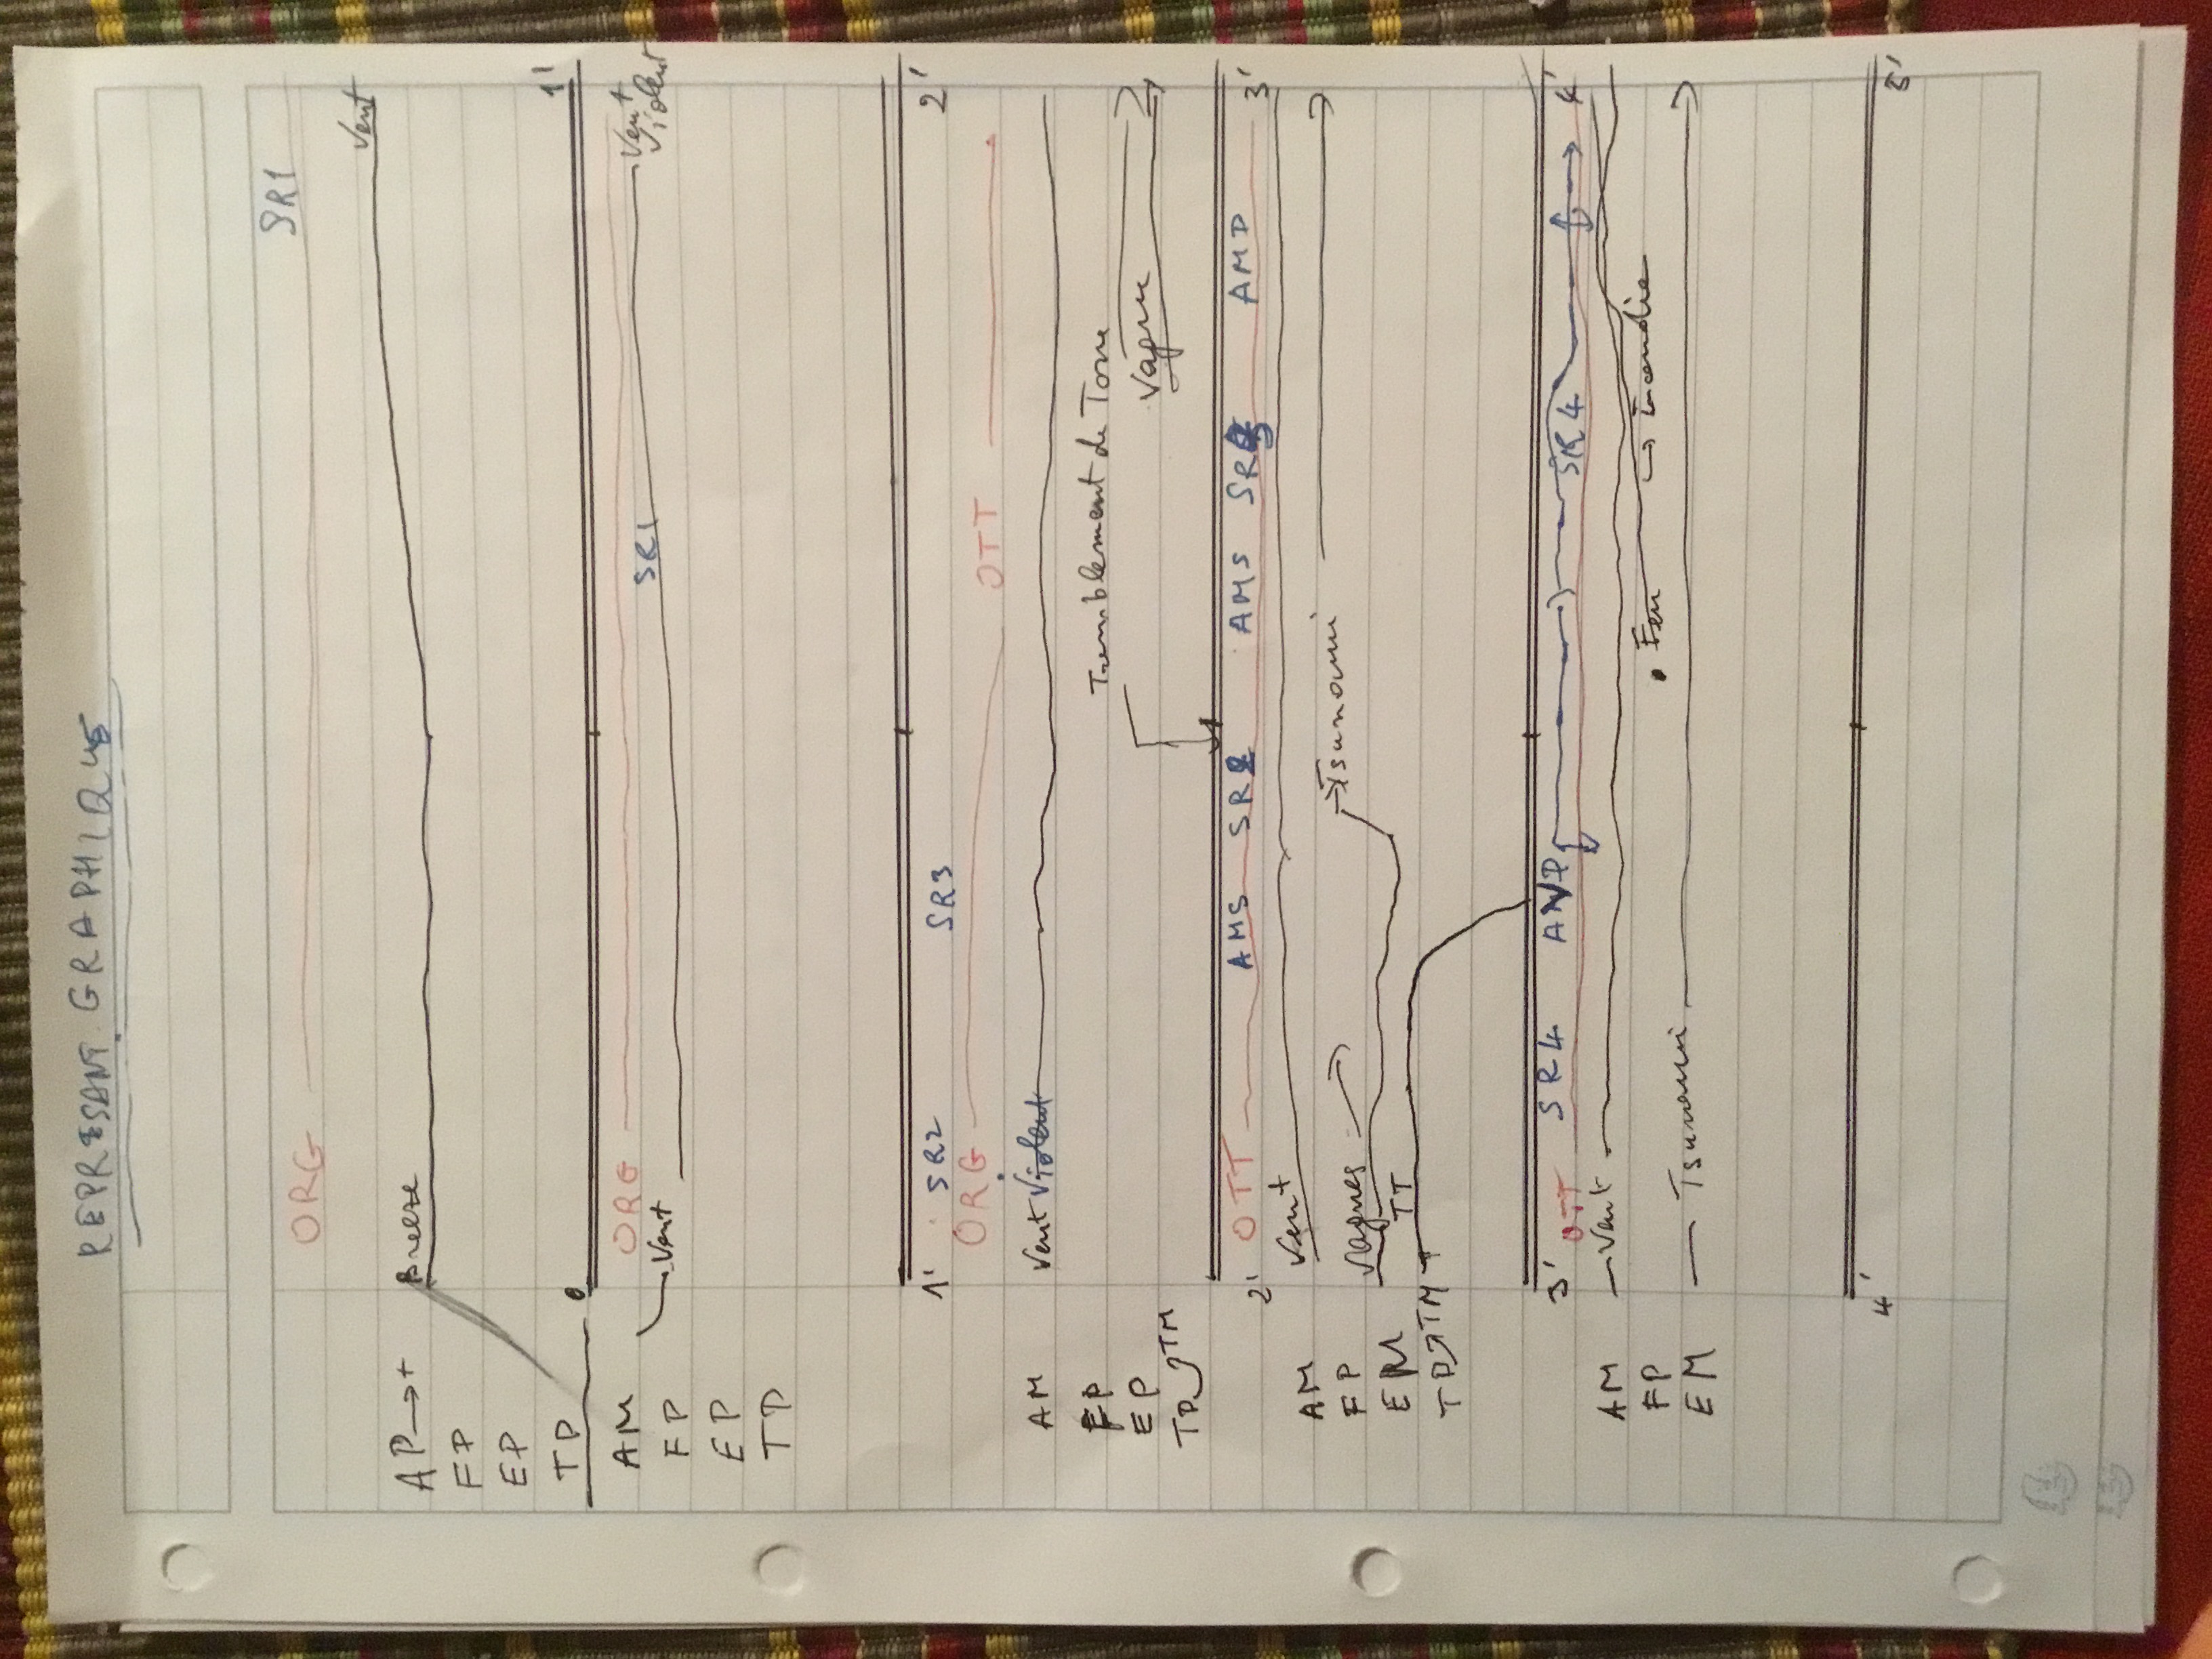 REPRESANT. GRAPHIQUE
ORG SR1
Vent
AP→+ Breeze
FP
EP
TP
0 1'
AM ORG SR1 Vent
Vent Violent
FP
EP
TP
1' SR2 SR3 2'
ORG OTT
AM Vent Violent
FP Tremblement de Terre
EP Vagues
TP TM
2' OTT AMS SR2 AMS SR3 AMD 3'
AM Vent
FP Vagues → Tsunami
EM TT
TP TM
3' OTT SR4 AMD SR4 4'
AM Vent
FP Feu → Incendie
EM Tsunami
4' 5'